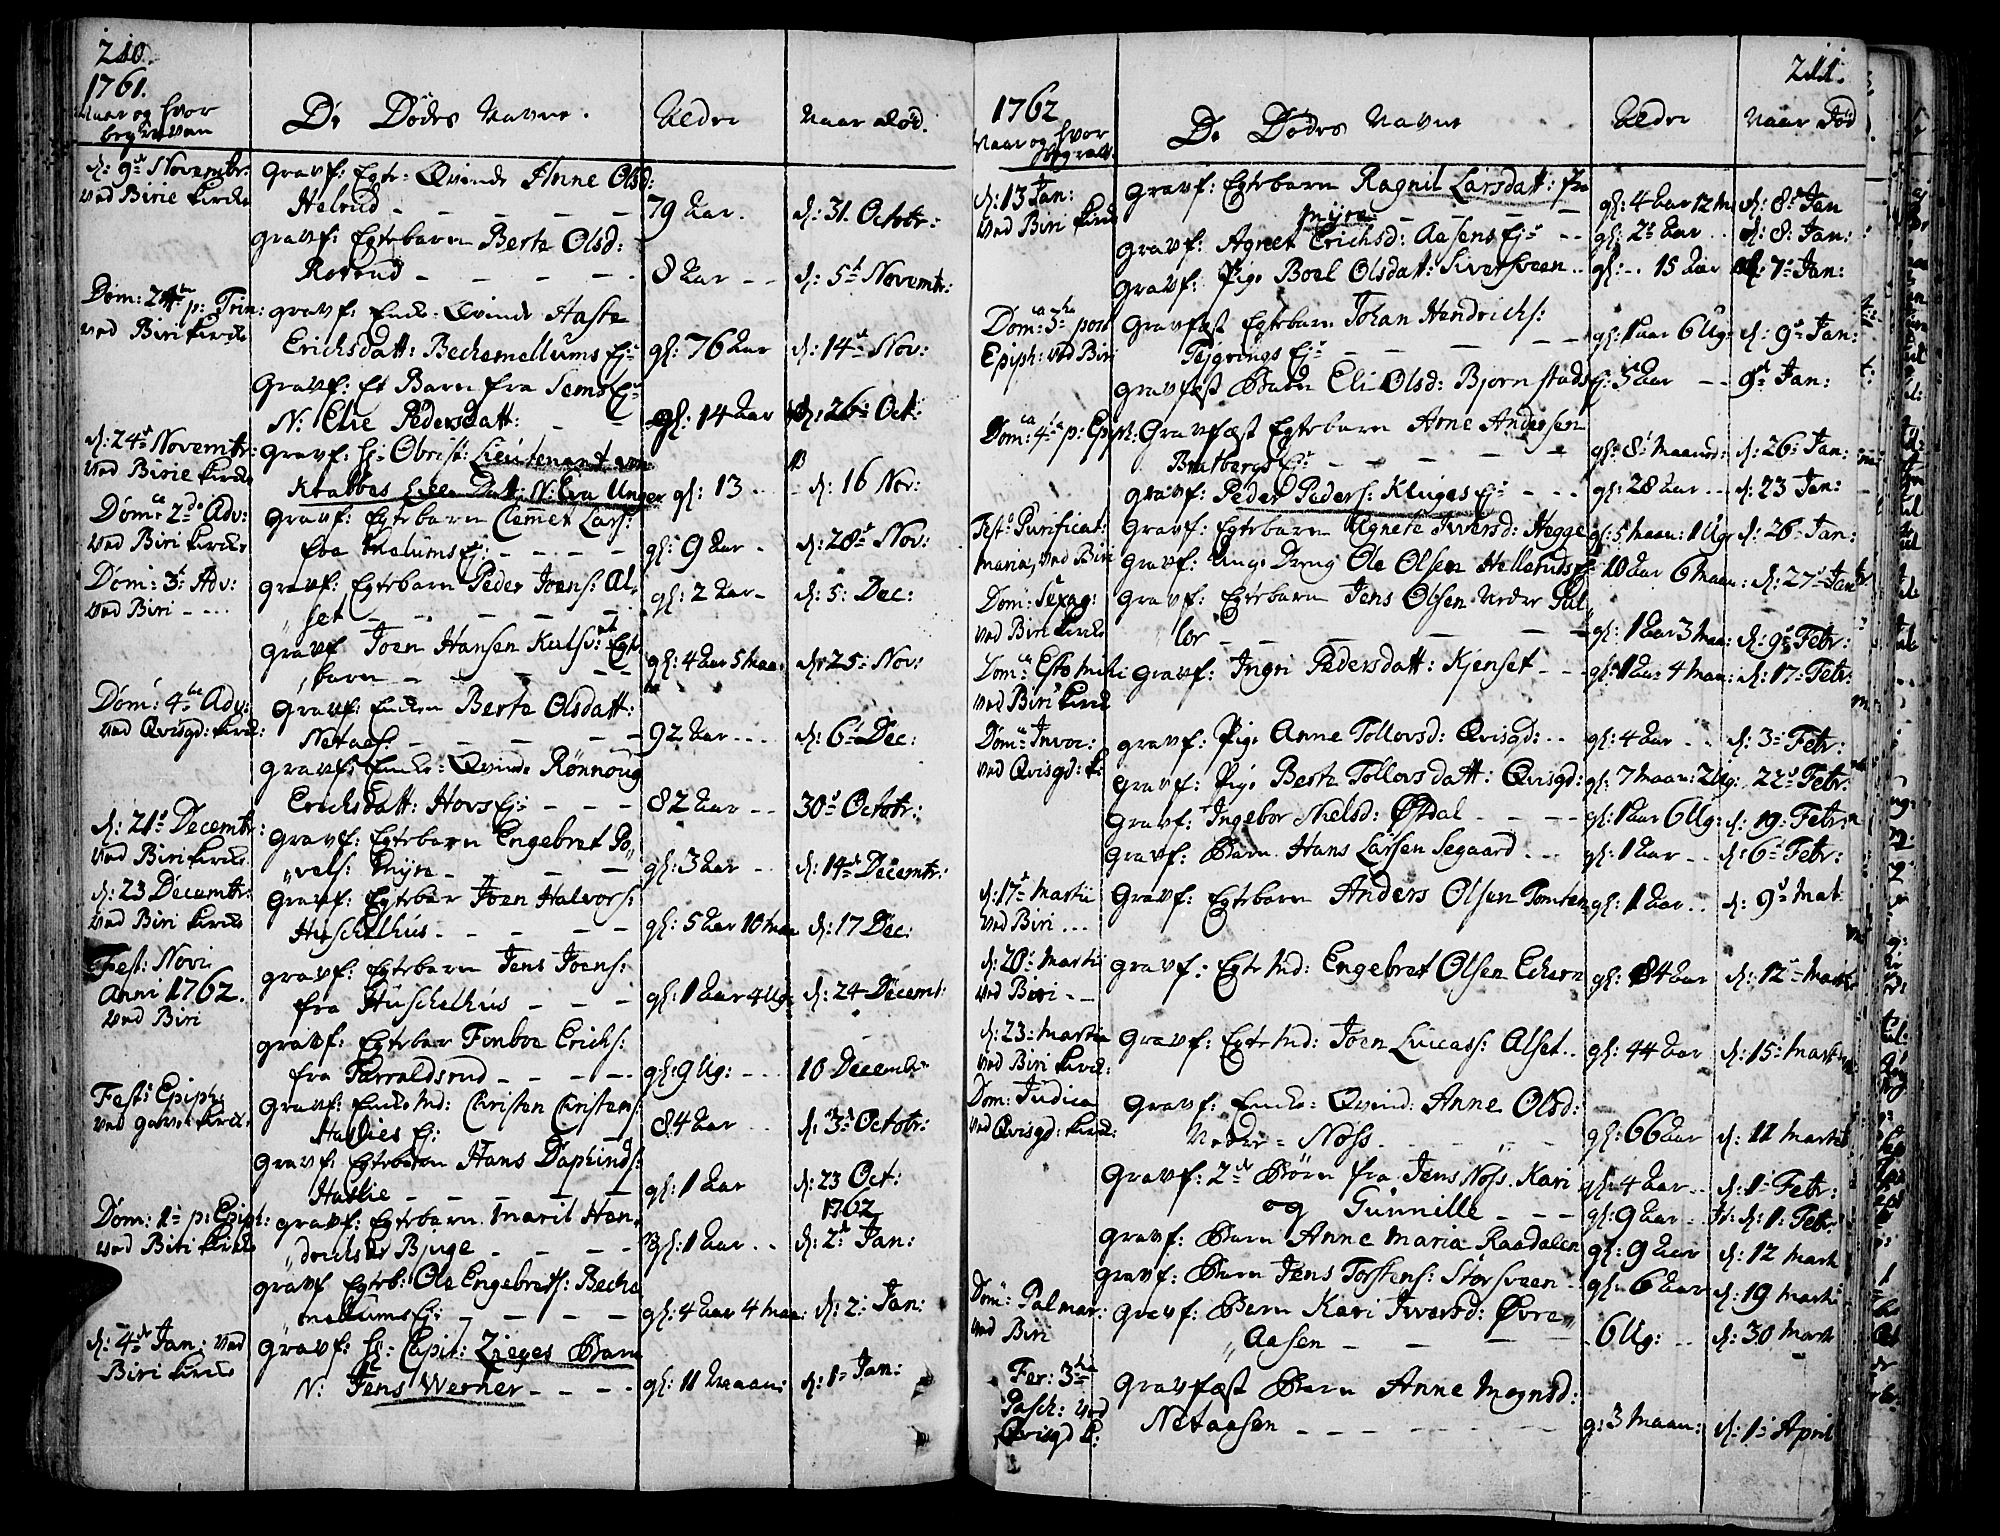 210.
1761.
Naar og hvor
begraven
De Dödes Navne.
Alder
Naar död.
d: 9de Novembr:
ved Birie Kirche
Gravf: Egte-Qvinde Anne Olsd:
Helrud - - - - -
79 Aar.
d: 31. Octobr:
gravf: Egtebarn Berte Olsd:
Roterud - - - - -
8 Aar - -
d: 5te Novembr:
Dom: 24de p: Trin:
ved Biri Kirche
gravf: Enke-Qvinde Haste
Erichsdatt: Bechemellums Ej:
gl: 76 Aar
d: 14de Nov:
Gravf: Et Barn fra Sems Ej:
N: Elie Pedersdatt: - -
gl: 14 Aar
d: 26 Oct:
d: 24de Novembr:
ved Birie Kirche
Gravf: Hr: Obrist: Lieutenant von
Krabbes Datt: N: Eva Unger
gl: 13 - -
d: 16 Nov:
Dom: 2de Adv:
ved Biri Kirche
Gravf: Egtebarn Clemet Lars:
fra Melums Ej: - - - -
gl: 9 Aar -
d: 28de Nov:
Dom: 3: Adv:
ved Biri - - -
gravf: Egtebarn Peder Joens: Al-
set - - - - -
gl: 2 Aar -
d: 5: Dec:
gravf Joen Hansen Kulsv: Egte
barn - - - -
gl: 4 Aar 5 maa:
d: 25: Nov:
Dom: 4de Adv:
ved Qvisgd: Kirch:
Gravf: Enken Berte Olsdatt:
Netaas: - - - - -
92 Aar - - -
d: 6te Dec:
gravf: Enke-Qvinde Rönnoug
Erichsdatt: Hovs Ej: - - -
82 Aar - -
30de Octobr:
d: 21de Decembr:
ved Biri Kirche
gravf: Egtebarn Engebret Po-
vels: Myre - - -
gl: 3 Aar - -
d: 14de Decembr:
d: 23 Decembr:
ved Biri Kirche
gravf: Egtebar Joen Halvors:
Huschelhus - - - - -
gl: 5 Aar 10 maa
d: 17 Dec:
Fest: Novi
Anni 1762.
ved Biri
gravf: Egtebarn Jens Joens:
fra Huschelhus - - -
gl: 1 Aar 4 Ug:
d: 24 Decembr:
gravf: Egtebar Finboe Erichs:
fra Parraldsrud - - - -
gl: 9 Ug: - - -
10 Decembr
Fest: Epiph:
ved Kirch:
Gravf: Enke Md: Christen Christens:
Hallies Ej:
84 Aar - -
d: 3de Octobr:
gravf: Egtebarn Hans Daphinds:
Hallie - - - - -
gl: 1 Aar
d: 23 Oct:
Dom: 1te p: Epiph:
ved Biri Kirche
gravf: Egtebarn Marit Hen-
drichsdr Bjuge - - - -
gl: 1 Aar - -
1762
d: 2de Jan:
gravf Egteb: Ole Engebrets: Beche
mellums Ej: - - - -
gl: 4 Aar 4 maa:
d: 2: Jan:
d: 4de Jan: ved
Biri Kirche
gravf: Hr: Capit: Zieges Barn
N: Jens Werner - - - -
gl: 11 Maan:
d: 1te Jan:
211.
1762
Naar og hvor
begrav.
De Dödes Navne
Alder
Naar Död
d: 13 Jan:
ved Biri Kirch
gravf: Egtebarn Ragnil Larsdatt: fra
Myre - - - -
gl: 4 Aar 12 m
d: 8de Jan
gravf: Agnet Erichsd: Aasens Ej: - -
gl: 2 Aar - -
d: 8: Jan:
gravf: Pige Boel Olsdatt: Siversveen - -
gl: - - 15 Aar
d: 7de Jan:
Dom: 3tia post
Epiph: ved Biri
Gravfæst Egtebarn Johan Hendrichs:
Tejgrings Ej: - - - -
gl: 1 aar 6 Ug:
d: 9de Jan:
gravfæst Barn Eli Olsd: Bjornstads Ej:
5 Aar - -
9de Jan:
Dom: 4ta p: Epiph:
Gravfæst Egtebarn Arne Andersen
Bratbergs Ej: - - - -
gl: 8 Maaned:
d: 26: Jan:
gravf: Peder Peders: Kluges Ej: - - -
gl: 28 Aar - -
d: 23 Jan:
Fest: Purificat:
Mariæ, ved Biri
gravf: Egtebarn Agnete Iversd: Hegge
gl: 5 maan: 1 Ug
d: 26: Jan:
gravf: Unge Dreng Ole Olsen Hellerud
10 Aar 6 Maan:
d: 27: Jan
Dom: Sexag:
ved Biri Kirche
gravf: Egtebarn Jens Olsen Nedre Pal-
lor - - - - -
gl: 1 Aar 3 Maa:
d: 9de Febr:
Dom: Esto mihi
ved Biri Kirch
gravf: Ingri Pedersdatt: Kjenset - - -
gl: 1 Aar 4 maan:
d: 17: Febr:
Dom: Invoc:
ved Qvisgd: K:
gravf: Pige Anne Tollovsd: Qvisgd: - -
gl: 4 Aar - -
d: 3: Febr:
gravf: Pige Berte Tollovsdatt: Qvisgd:
gl: 7 maan: 2 Ug:
22de Febr:
gravf: Ingebor Nielsd: Östdal - - -
gl: 1 Aar 6 Ug:
d: 19: Febr:
gravf: Barn Hans Larsen Segaard - -
gl: 1 Aar - -
d: 6te Febr:
d: 17de Martii
ved Biri - - -
gravf: Egtebarn Anders Olsen Tomten
gl: 1 Aar - -
d: 9de Mat
d: 20de Martii
ved Biri - -
gravf: Egte Md: Engebret Olsen Echern
gl: 84 Aar
d: 12de Martii
d: 23: Martii
ved Biri Kirch:
gravf: Egte Md: Joen Luccass: Alset - -
gl: 44 Aar
d: 15de Martii
Dom: Judica
ved Qvisgd: Kirch:
gravf: Enke-Qvind: Anne Olsd:
Nedre - Noss - - -
gl: 66 Aar
d: 11 Martii
gravf: 2de Börn fra Jens Noss. Kari
og Gunnille - - -
gl: 4 Aar - -
d: 1te Febr:
gl: 9 Aar - -
d: 1: Febr:
gravf: Barn Anne Maria Raadalen
gl: 9 Aar
d: 12 Marti
gravf: Barn Jens Torstens: Storsveen - -
gl: 6 Aar
d: 19 Martii
Dom: Palmar:
ved Biri
gravf: Barn Kari Iversd: Övre-
Aasen - - - -
6 Ug: - -
d: 30 Marti
Fer: 3tia
Pasch: ved
Qvisgd K:
gravfæst Barn Anne Mognsd:
Netaasen - - - - - -
g: 3 Maan:
d: 1te April